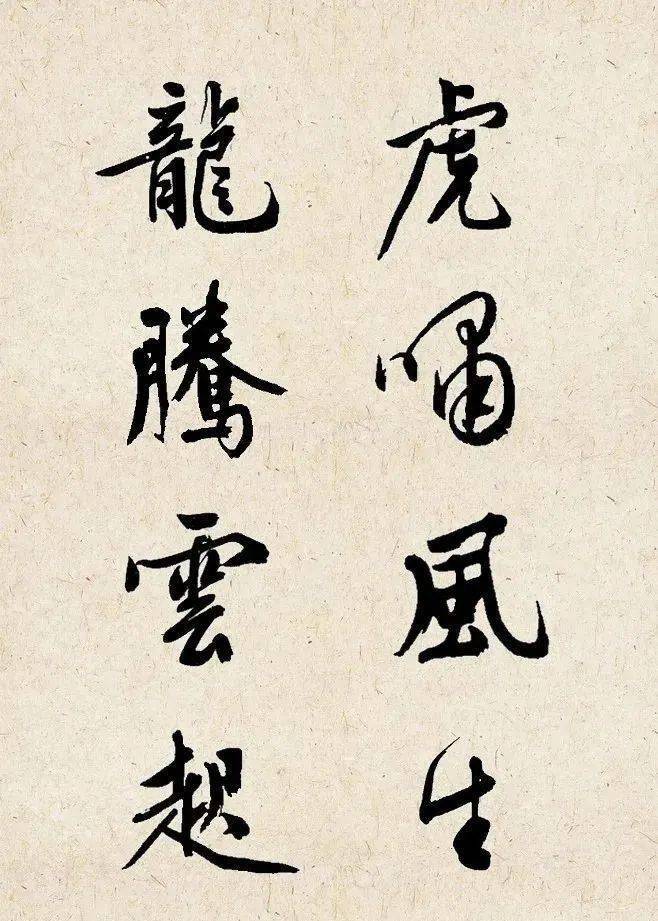 虎嘯風生
龍騰雲起